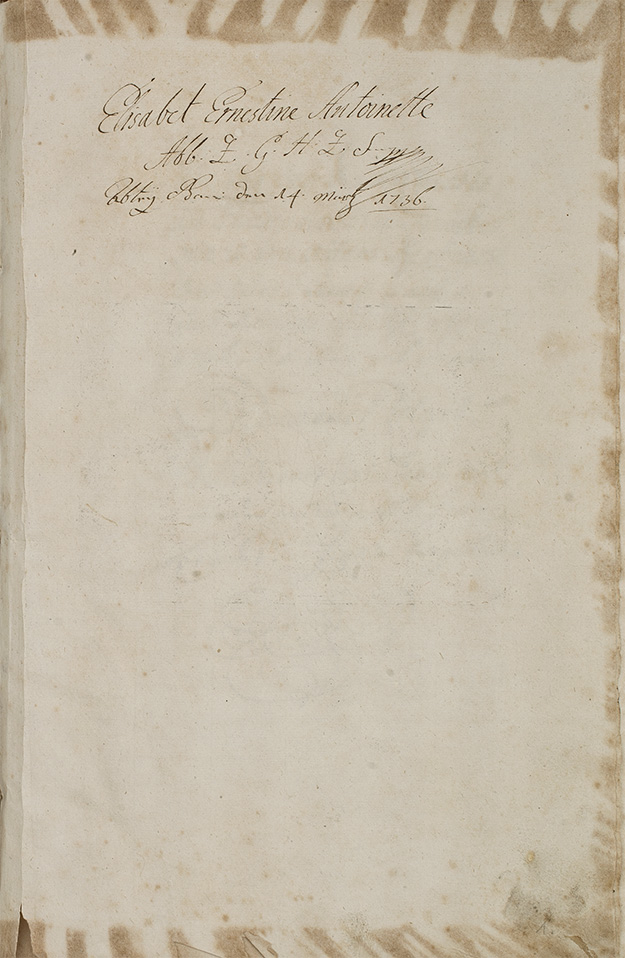 Elisabet Ernestine Antoinette
Abb. Z. G. H. Z. S.
Abtey den 14. Märtz 1736.